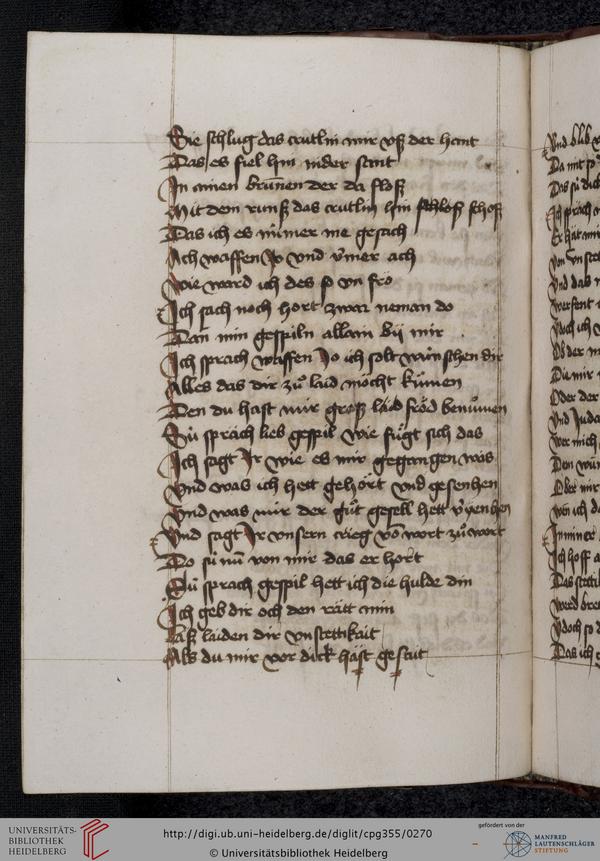 Sie schlug das crutlin mir vsß der hant
Das es fiel hin nider sant
In ainen brunnen der da floß
Mit dem runß das crutlin hin schloß schoß
Das ich es nimer me gesach
Ach waffen Jo vnd ymer ach
Wie ward ich des so vn fro
Ich sach noch hort zwar neman do
Dan min gespiln allain bij mir
Ich sprach waffen Jo ich solt wünschen dir
Alles das dir zuͦ laid möcht kumen
Den du hast mir groß laid fröd benumen
Sü sprach lieb gespil wie fügt sich das
Ich sagt Ir wie es mir gegangen was
Vnd was ich hett gehört vnd gesenhen
Vnd was mir der guͦt gesell hett veryenhen
Vnd sagt Ir vnsern crieg vō wort zuͦ wort
Do sü nu von mir das er hort
Sü sprach gespil hett ich die hulde din
Ich geb dir och den rätt min
laß laiden dir vnstettikait
Als du mir vor dick häst geseit
Vnd blib
Da mit
Das sü dick
Ich sprach
Er hat
von vnstet
Vnd das
Ob der
Du mir
Oder der
Vnd
wer mich
Den
Ich hoff
Das stetti
ward
Das ich
UNIVERSITÄTS-
BIBLIOTHEK
HEIDELBERG
http://digi.ub.uni-heidelberg.de/diglit/cpg355/0270
© Universitätsbibliothek Heidelberg
gefördert von der
MANFRED
LAUTENSCHLÄGER
STIFTUNG